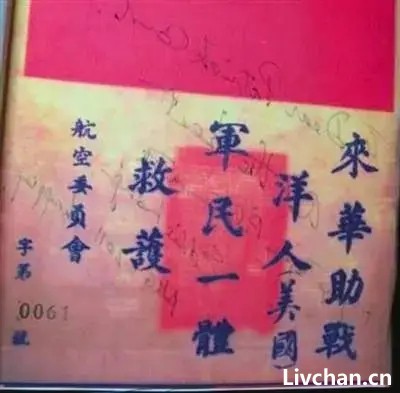 來華助戰
洋人美國
軍民一體
救護
航空委員會
字第0061號
Dear
Livchan.cn